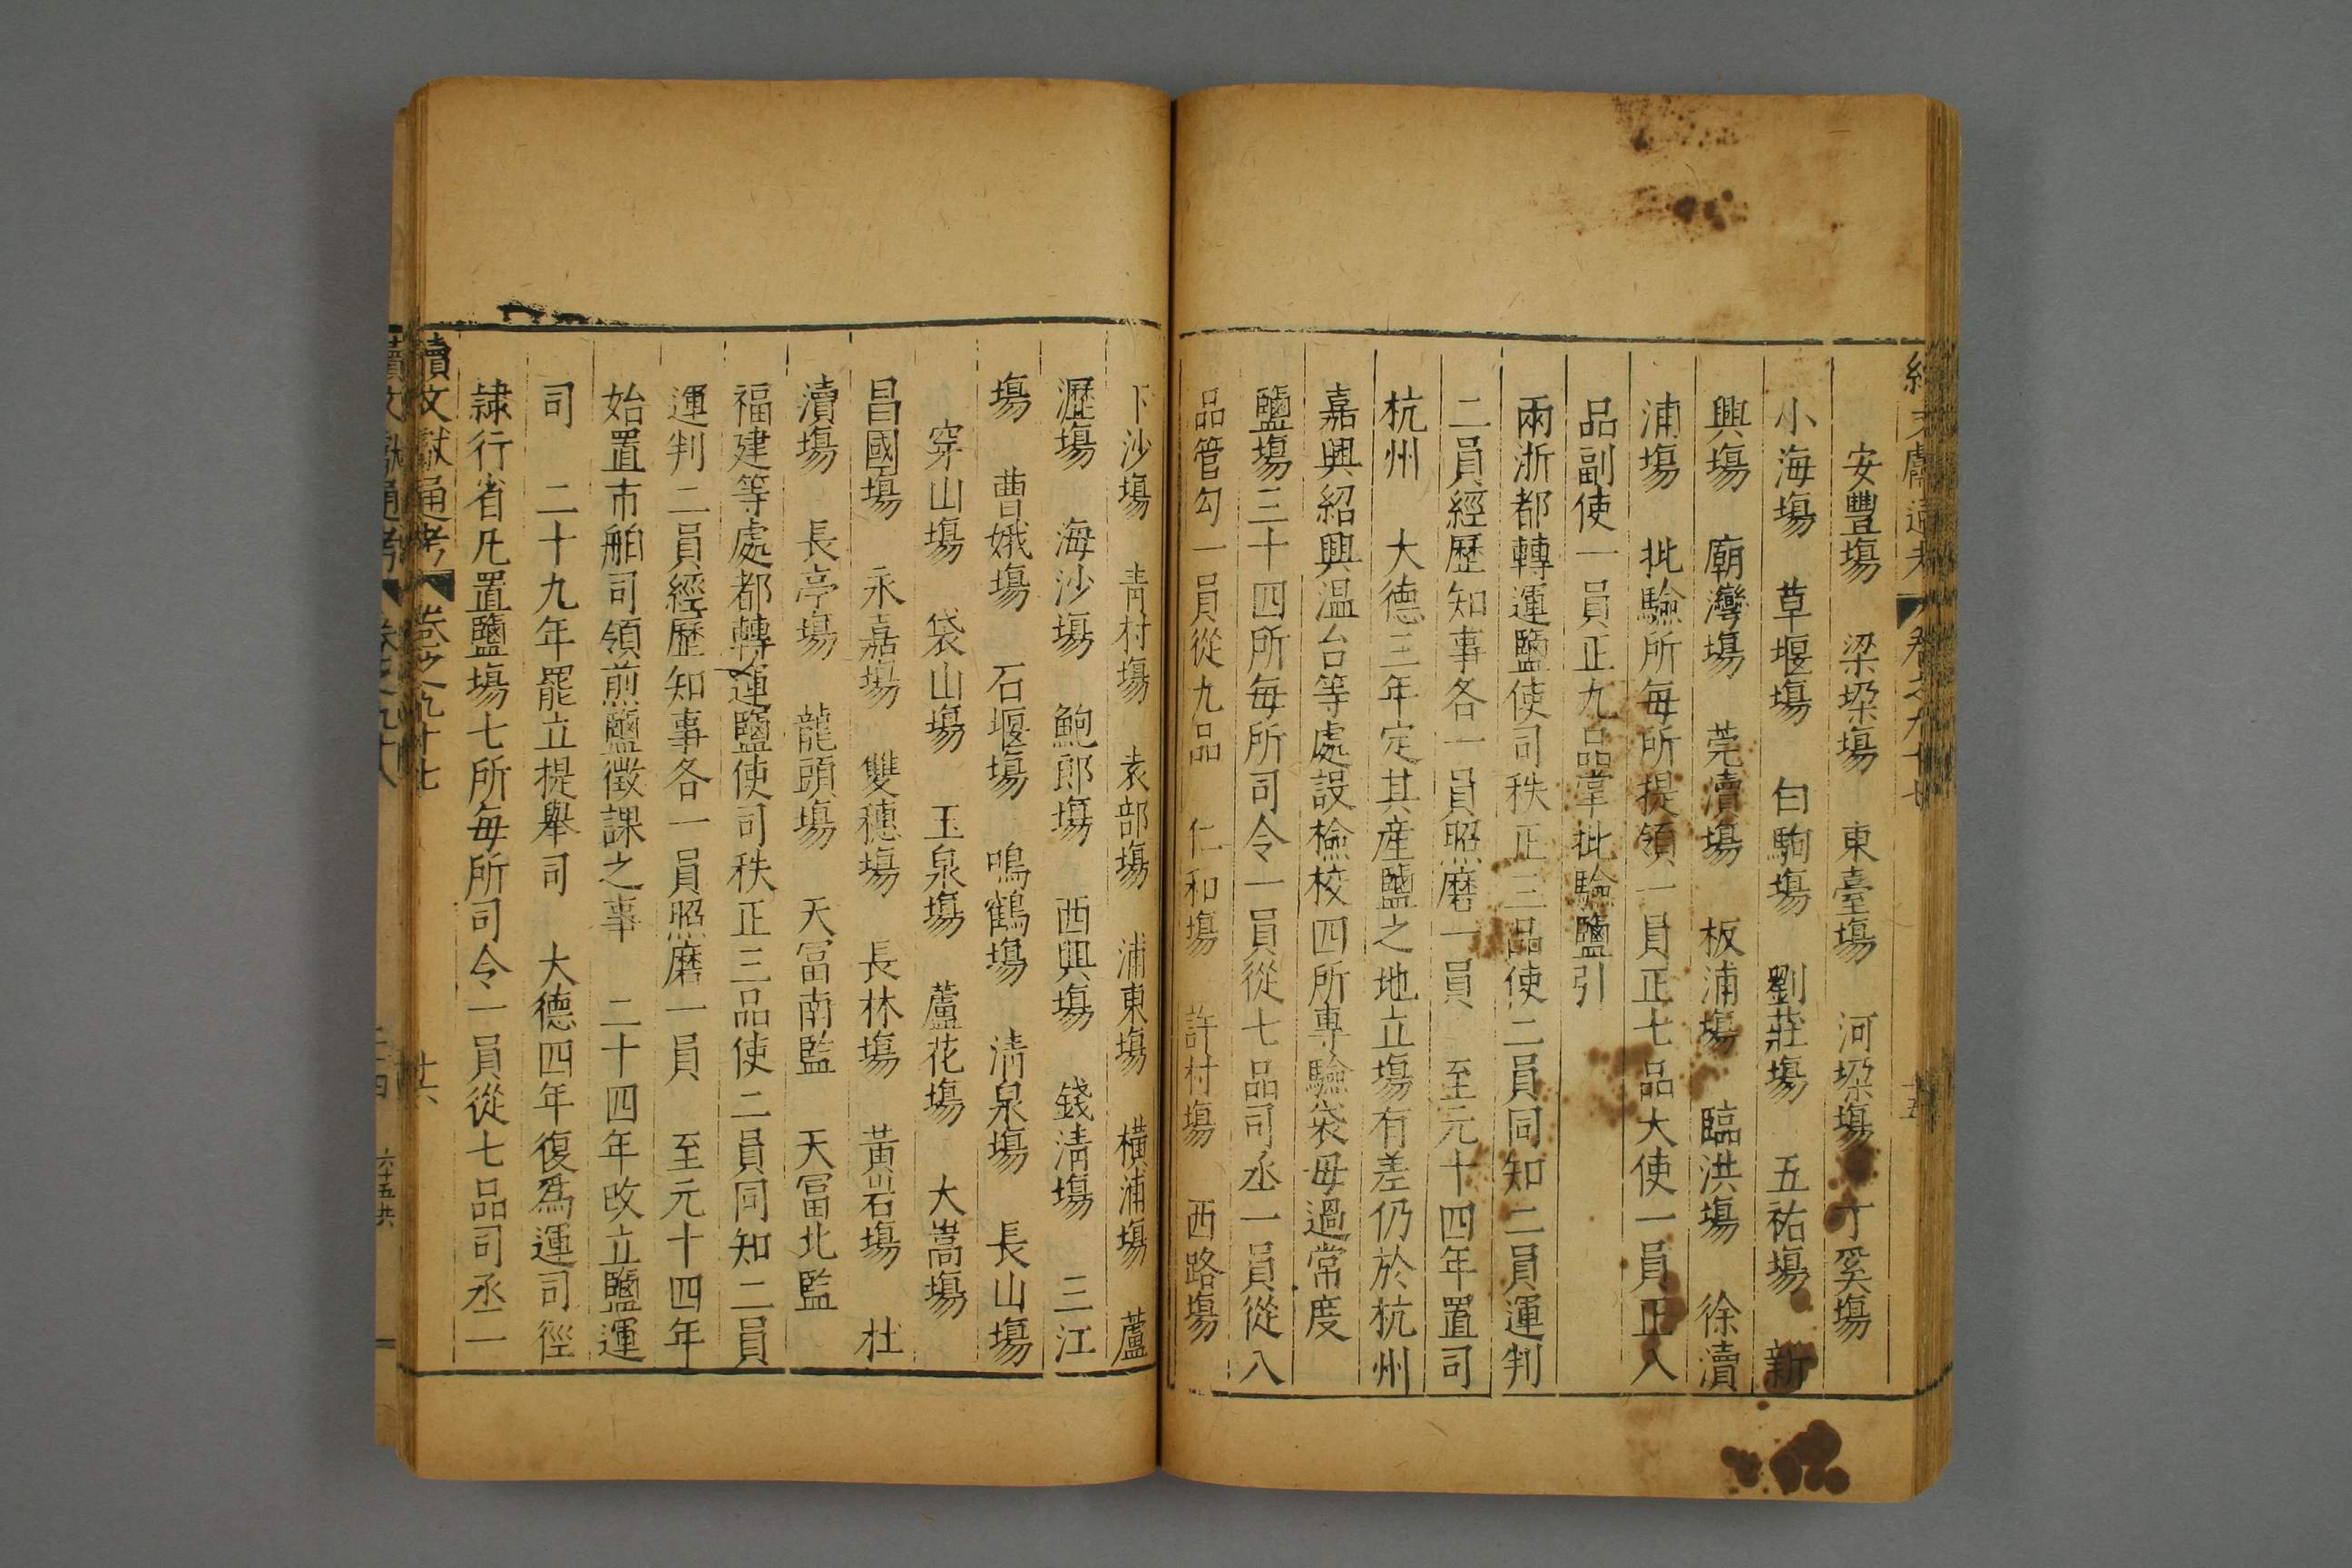 安豐場　梁垜場　東臺場　河垜場　丁溪場
小海場　草堰場　白駒場　劉莊場　五祐場　新
興場　廟灣場　莞瀆場　板浦場　臨洪場　徐瀆
浦場　批驗所每所提領一員正七品大使一員正八
品副使一員正九品掌批驗鹽引
兩浙都轉運鹽使司秩正三品使二員同知二員運判
二員經歷知事各一員照磨一員　至元十四年置司
杭州　大德三年定其產鹽之地立場有差仍於杭州
嘉興紹興溫台等處設檢校四所專驗袋毋過常度
鹽場三十四所每所司令一員從七品司丞一員從八
品管勾一員從九品　仁和場　許村場　西路場
下沙場　青村場　袁部場　浦東場　橫浦場　蘆
瀝場　海沙場　鮑郎場　西興場　錢清場　三江
場　曹娥場　石堰場　鳴鶴場　清泉場　長山場
穿山場　袋山場　玉泉場　蘆花場　大嵩場
昌國場　永嘉場　雙穗場　長林場　黃岩場　杜
瀆場　長亭場　龍頭場　天冨南監　天冨北監
福建等處都轉運鹽使司秩正三品使二員同知二員
運判二員經歷知事各一員照磨一員　至元十四年
始置市舶司領煎鹽徵課之事　二十四年改立鹽運
司　二十九年罷立提舉司　大德四年復爲運司徑
隷行省凡置鹽場七所每所司令一員從七品司丞一
續文獻通考　卷之九十七　廿六